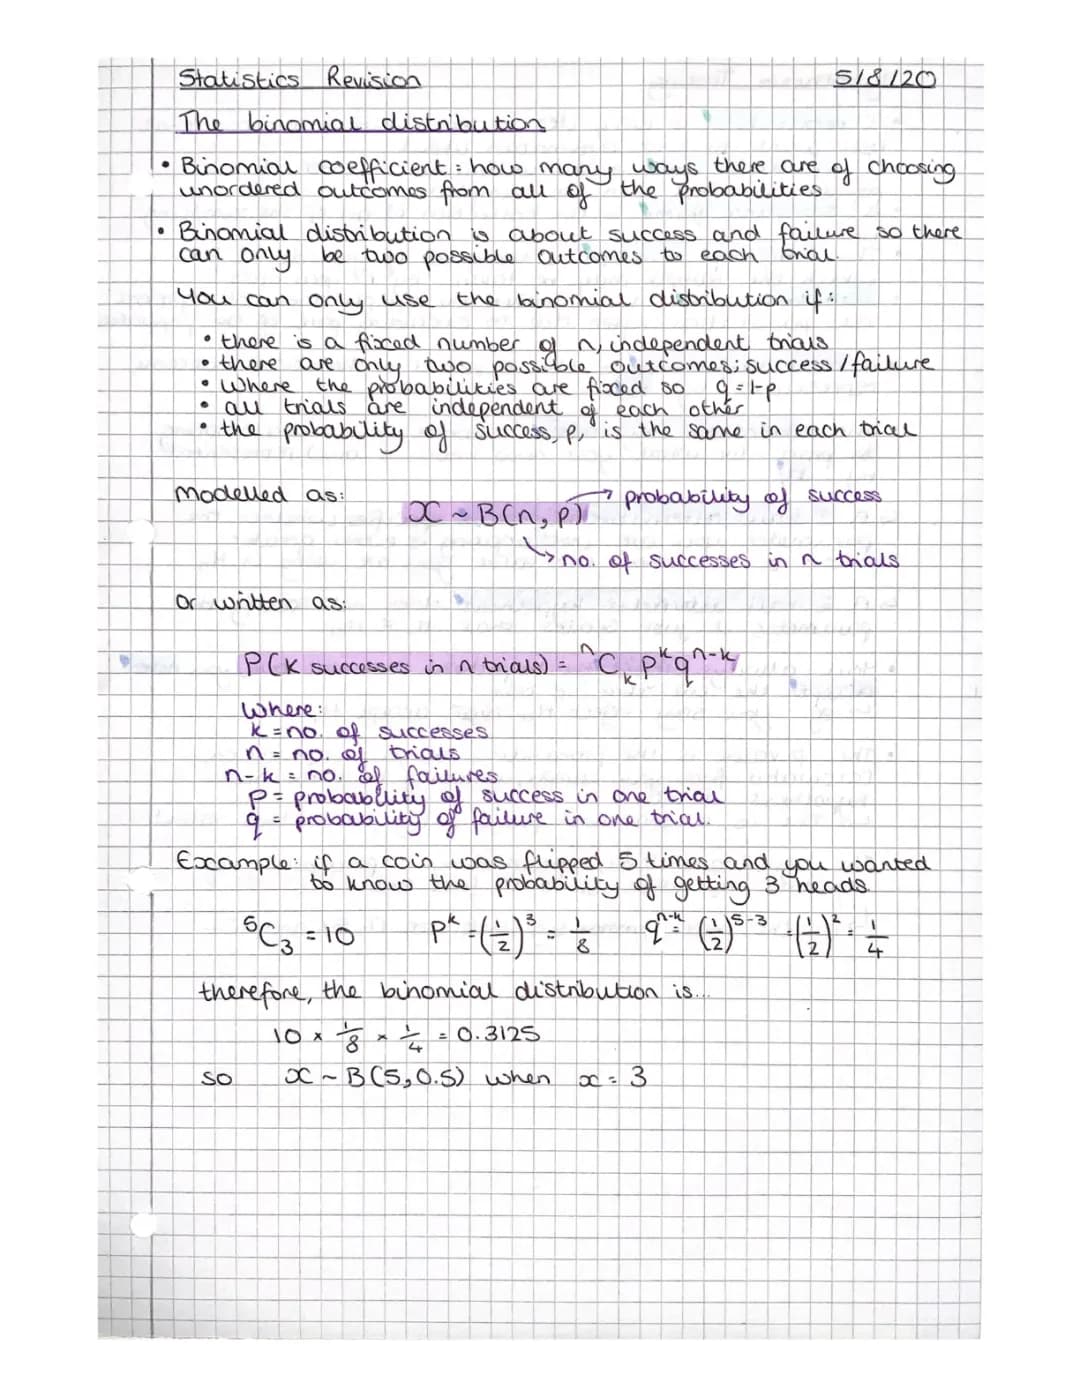 Statistics Revision 5/8/20
The binomial distribution
• Binomial coefficient: how many ways there are of choosing
unordered outcomes from all of the probabilities
• Binomial distribution is about success and failure so there
can only be two possible outcomes to each trial.
You can only use the binomial distribution if:
• there is a fixed number of n, independent trials
• there are only two possible outcomes; success / failure
• Where the probabilities are fixed so q = 1-p
• all trials are independent of each other
• the probability of success, p, is the same in each trial
Modelled as:
X ~ B(n, p) → probability of success
↳ no. of successes in n trials
or written as:
P(K successes in n trials) = ⁿCₖ pᵏqⁿ⁻ᵏ
Where:
k = no. of successes
n = no. of trials
n-k = no. of failures
p = probability of success in one trial
q = probability of failure in one trial.
Example: if a coin was flipped 5 times and you wanted
to know the probability of getting 3 heads
⁵C₃ = 10 pᵏ = (1/2)³ = 1/8 qⁿ⁻ᵏ = (1/2)⁵⁻³ = (1/2)² = 1/4
therefore, the binomial distribution is...
10 × 1/8 × 1/4 = 0.3125
so X ~ B(5, 0.5) when x = 3